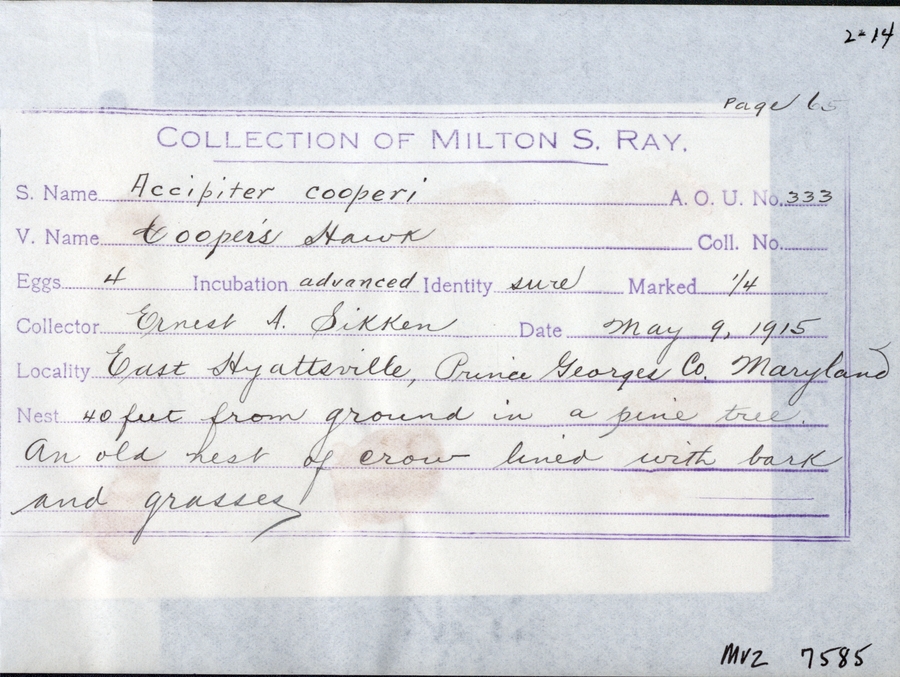 2=14
Page 65
COLLECTION OF MILTON S. RAY.
S. Name Accipiter cooperi A. O. U. No. 333
V. Name Cooper's Hawk Coll. No.
Eggs 4 Incubation advanced Identity sure Marked 1/4
Collector Ernest A. Sikken Date May 9, 1915
Locality East Hyattsville, Prince Georges Co. Maryland
Nest 40 feet from ground in a pine tree.
An old nest of crow lined with bark
and grasses
MVZ 7585